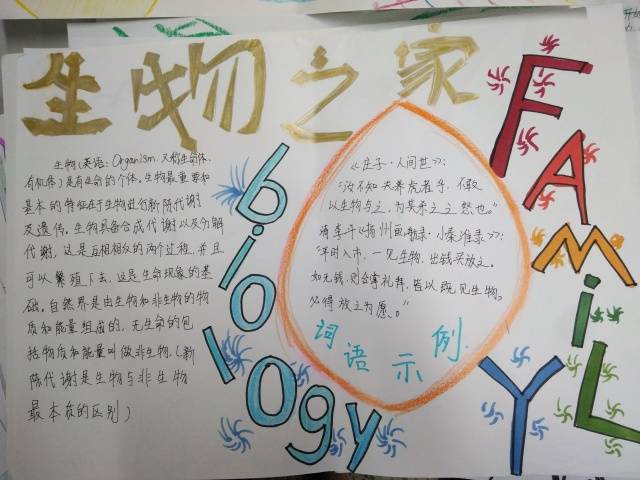 生物之家
生物(英语:Organism,又称生命体、
有机体)是有生命的个体。生物最重要和
基本的特征在于生物进行新陈代谢
及遗传。生物具备合成代谢以及分解
代谢,这是互相相反的两个过程,并且
可以繁殖下去,这是生命现象的基
础。自然界是由生物和非生物的物
质和能量组成的。无生命的包
括物质和能量叫做非生物。(新
陈代谢是生物与非生物
最本质的区别)
biology
《庄子·人间世》:
"汝不知夫养虎者乎,不敢
以生物与之,为其杀之之怒也。"
清李斗《扬州画舫录·小秦淮录》:
"平时入市,一见生物,出钱买放之。
如无钱,则合掌礼拜,皆以既见生物,
必得放之为愿。"
词语示例
FAMiLY